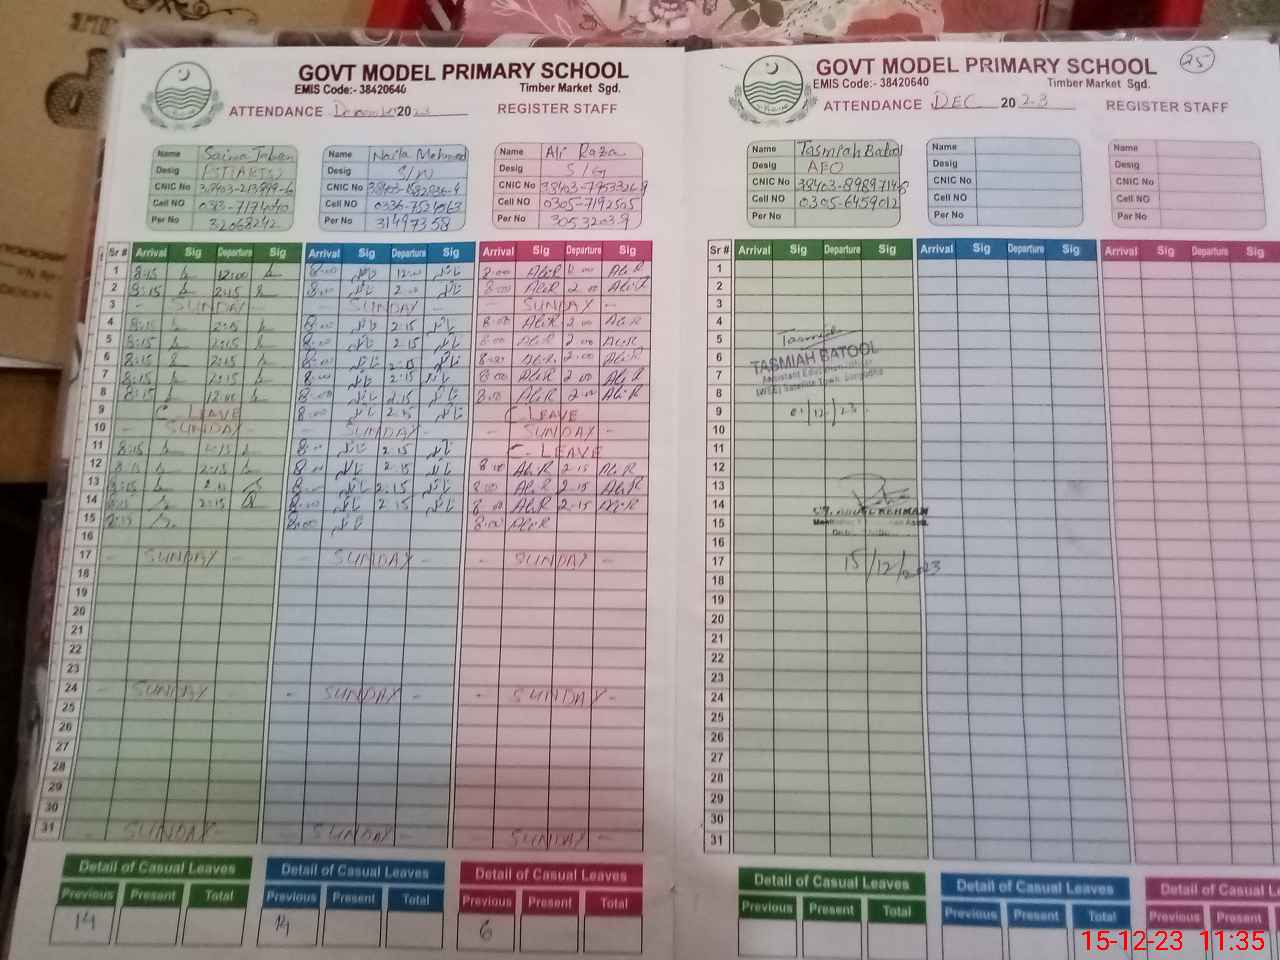 GOVT MODEL PRIMARY SCHOOL
EMIS Code:- 38420640
Timber Market Sgd.
ATTENDANCE 2023 REGISTER STAFF
Name Saima
Desig PST(ARTS)
CNIC No
Cell NO
Per No 32068242
Name Naila Mehmood
Desig S/W
CNIC No
Cell NO
Per No 31497358
Name Ali Raza
Desig S/G
CNIC No
Cell NO 0305-7192505
Per No 30532039
Sr # Arrival Sig Departure Sig Arrival Sig Departure Sig Arrival Sig Departure Sig
1 8:15 12:00 8:00 نائلہ 12:00 نائلہ 8:00 Ali.R Ali.R
2 8:15 2:15 8:00 نائلہ نائلہ 8:00 Ali.R 2:00 Ali.R
3 - SUNDAY - - SUNDAY - - SUNDAY -
4 8:15 2:15 8:00 نائلہ 2:15 نائلہ 8:00 Ali.R 2:00 Ali.R
5 8:15 2:15 8:00 نائلہ 2:15 نائلہ 8:00 Ali.R 2:00 Ali.R
6 8:15 2:15 8:00 نائلہ 2:15 نائلہ 8:00 Ali.R 2:00 Ali.R
7 8:15 2:15 8:00 نائلہ 2:15 نائلہ 8:00 Ali.R 2:00 Ali.R
8 8:15 12:00 8:00 نائلہ نائلہ 8:00 Ali.R 2:00 Ali.R
9 C. LEAVE 8:00 نائلہ 2:15 نائلہ C. LEAVE
10 - SUNDAY - - SUNDAY - - SUNDAY -
11 8:15 2:15 8:00 نائلہ 2:15 نائلہ C. LEAVE
12 8:15 2:15 8:00 نائلہ 2:15 نائلہ 8:00 Ali.R 2:15 Ali.R
13 8:15 8:00 نائلہ 2:15 نائلہ 8:00 Ali.R 2:15 Ali.R
14 8:15 2:15 8:00 نائلہ 2:15 نائلہ 8:00 Ali.R 2:15 Ali.R
15 8:15 8:00 نائلہ 8:00 Ali.R
16
17 - SUNDAY - - SUNDAY - - SUNDAY -
18
19
20
21
22
23
24 - SUNDAY - - SUNDAY - - SUNDAY -
25
26
27
28
29
30
31 - SUNDAY - - SUNDAY - - SUNDAY -
Detail of Casual Leaves Detail of Casual Leaves Detail of Casual Leaves
Previous Present Total Previous Present Total Previous Present Total
14 14 6
25
GOVT MODEL PRIMARY SCHOOL
EMIS Code:- 38420640
Timber Market Sgd.
ATTENDANCE DEC 2023 REGISTER STAFF
Name Tasmiah Batool
Desig AEO
CNIC No
Cell NO 0305-6459012
Per No
Name
Desig
CNIC No
Cell NO
Per No
Name
Desig
CNIC No
Cell NO
Per No
Sr # Arrival Sig Departure Sig Arrival Sig Departure Sig Arrival Sig Departure Sig
1
2
3
4
5
6
7
8
9
10
11
12
13
14
15
16
17
18
19
20
21
22
23
24
25
26
27
28
29
30
31
Tasmiah
TASMIAH BATOOL
Assistant Education
Satellite Town, Sargodha
01/12/23.
15/12/2023
Detail of Casual Leaves Detail of Casual Leaves Detail of Casual Leaves
Previous Present Total Previous Present Total Previous Present
15-12-23 11:35